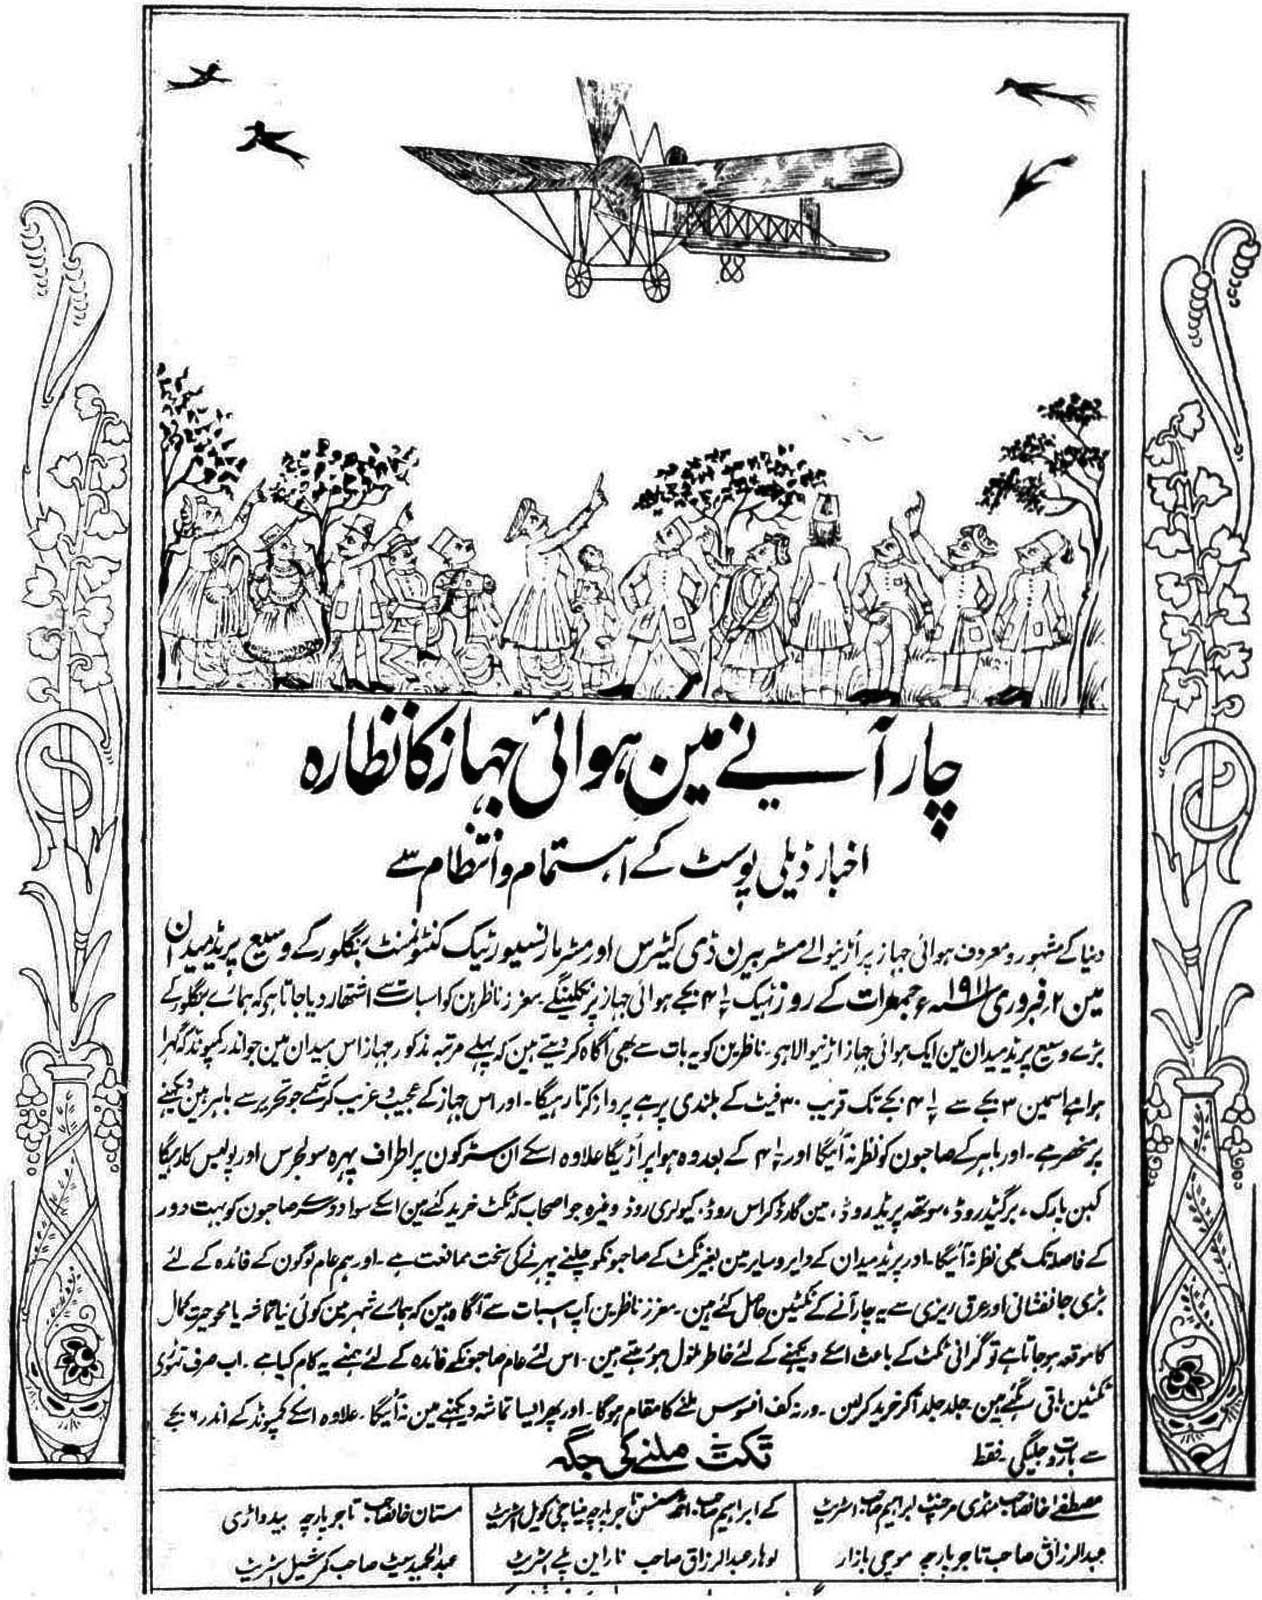 چار آنے مین ہوائی جہاز کا نظارہ
اخبار ڈیلی پوسٹ کے اہتمام و انتظام سے
دنیا کے مشہور و معروف ہوائی جہاز پر اُڑنیوالے مسٹر بیرن ڈی کیٹرس اور مسٹر مانسیور ٹیک کنٹونمنٹ بنگلور کے وسیع پریڈ میدان
مین ۲ فبروری سنہ ۱۹۱۱ء جمعرات کے روز ٹہیک ۴½ بجے ہوائی جہاز پر نکلینگے۔ معزز ناظرین کو اسبات سے اشتہار دیا جاتا ہو کہ ہمارے بنگلور کے
بڑے وسیع پریڈ میدان مین ایک ہوائی جہاز اڑنیوالا ہو۔ ناظرین کو یہ بات سے بھی آگاہ کر دیتے ہین کہ پہلے مرتبہ مذکور جہاز اس میدان مین جو اندر کمپونڈ کہرا
ہوا ہے اسمین ۳ بجے سے ۴½ بجے تک قریب ۳۰ فیٹ کے بلندی پر ہے پرواز کرتا رہیگا۔ اور اس جہاز کے عجیب و غریب کرشمے جو تحریر سے باہر ہین دیکہنے
پر منحصر ہے۔ اور باہر کے صاحبون کو نظر نہ آئیگا اور ۴½ کے بعد وہ ہوا پر اُڑیگا علاوہ اسکے ان سڑکون پر اطراف پہرہ سولجرس اور پولیس کا رہیگا
کبن پارک، برگیڈ روڈ، سوتھ پریڈ روڈ، مین گارڈ کراس روڈ، کیولری روڈ وغیرہ جو اصحاب کہ ٹکٹ خرید کئے ہین اسکے سوا دوسرے صاحبون کو بہت دور
کے فاصلہ تک بھی نظر نہ آئیگا۔ اور پریڈ میدان کے دایر و سایر مین بغیر ٹکٹ کے صاحبونکو چلنے پہرنے کی سخت ممانعت ہے۔ اور ہم عام لوگون کے فائدہ کے لئے
بڑی جانفشانی اور عرق ریزی سے یہ چار آنے کے ٹکٹین حاصل کئے ہین۔ معزز ناظرین آپ اسبات سے آگاہ ہین کہ ہمارے شہر مین کوئی نیا تماشہ یا محو حیرت کمال
کا موقعہ ہو جاتا ہے تو گرانی ٹکٹ کے باعث اسکے دیکہنے کے لئے خاطر ملول ہوتے ہین۔ اس لئے عام صاحبونکے فائدہ کے لئے ہمنے یہ کام کیا ہے۔ اب صرف تہوڑی
ٹکٹین باقی رہگئے ہین۔ جلد جلد آکر خرید کرلین۔ ورنہ کف افسوس ملنے کا مقام ہوگا۔ اور پھر ایسا تماشہ دیکہنے مین نہ آئیگا۔ علاوہ اسکے کمپونڈ کے اندر ۲ بجے
سے باروجلیگی۔ فقط
ٹکٹ ملنے کی جگہ
مصطفےٰ خانصاحب منڈی مرچنٹ ابراہیم صاحب اسٹریٹ
کے ابراہیم صاحب اینڈ سنس تاجر پارچہ میناچی کویل اسٹریٹ
مستان خانصاحب تاجر پارچہ بیدواڑی
عبدالرزاق صاحب تاجر پارچہ موچی بازار
لوہار عبدالرزاق صاحب نارائن پٹے اسٹریٹ
عبدالحمید سیٹ صاحب کمرشیل اسٹریٹ